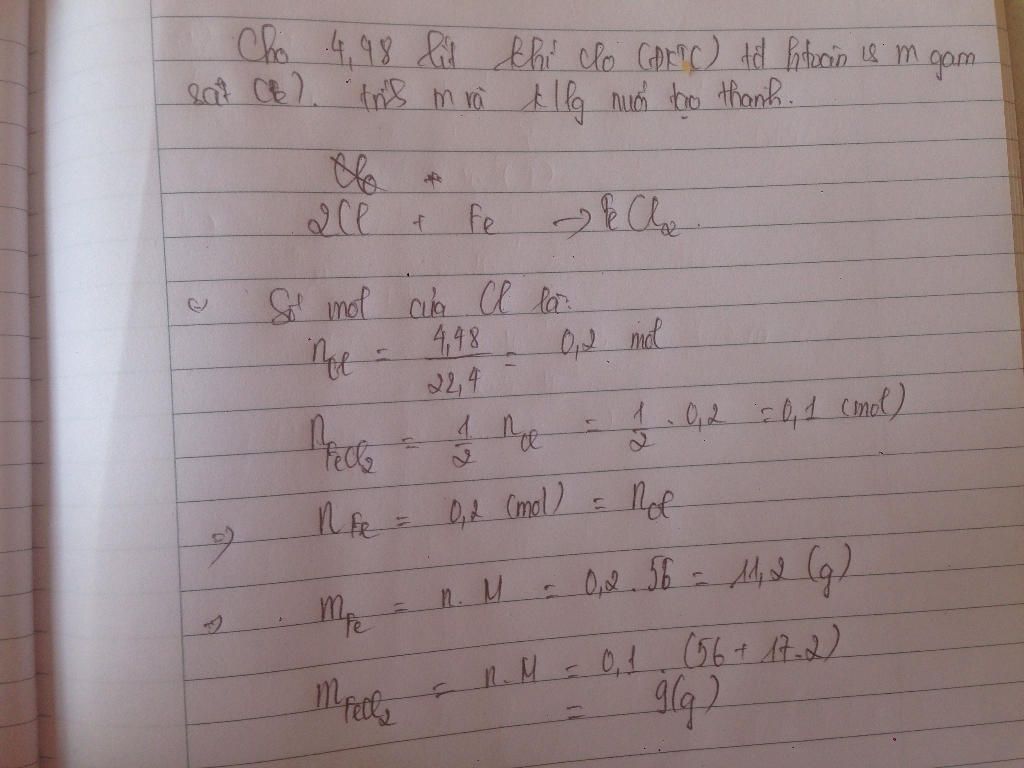 Cho 4,48 lít khí clo (ĐKTC) td htoàn vs m gam
sắt (). tính m và klg muối tạo thành.
2Cl + Fe → FeCl2
Số mol của Cl là:
nCl = 4,48/22,4 = 0,2 mol
nFeCl2 = 1/2 nCl = 1/2 . 0,2 = 0,1 (mol)
=> nFe = 0,2 (mol) = nCl
=> mFe = n.M = 0,2.56 = 11,2 (g)
mFeCl2 = n.M = 0,1.(56+17.2)
= 9(g)